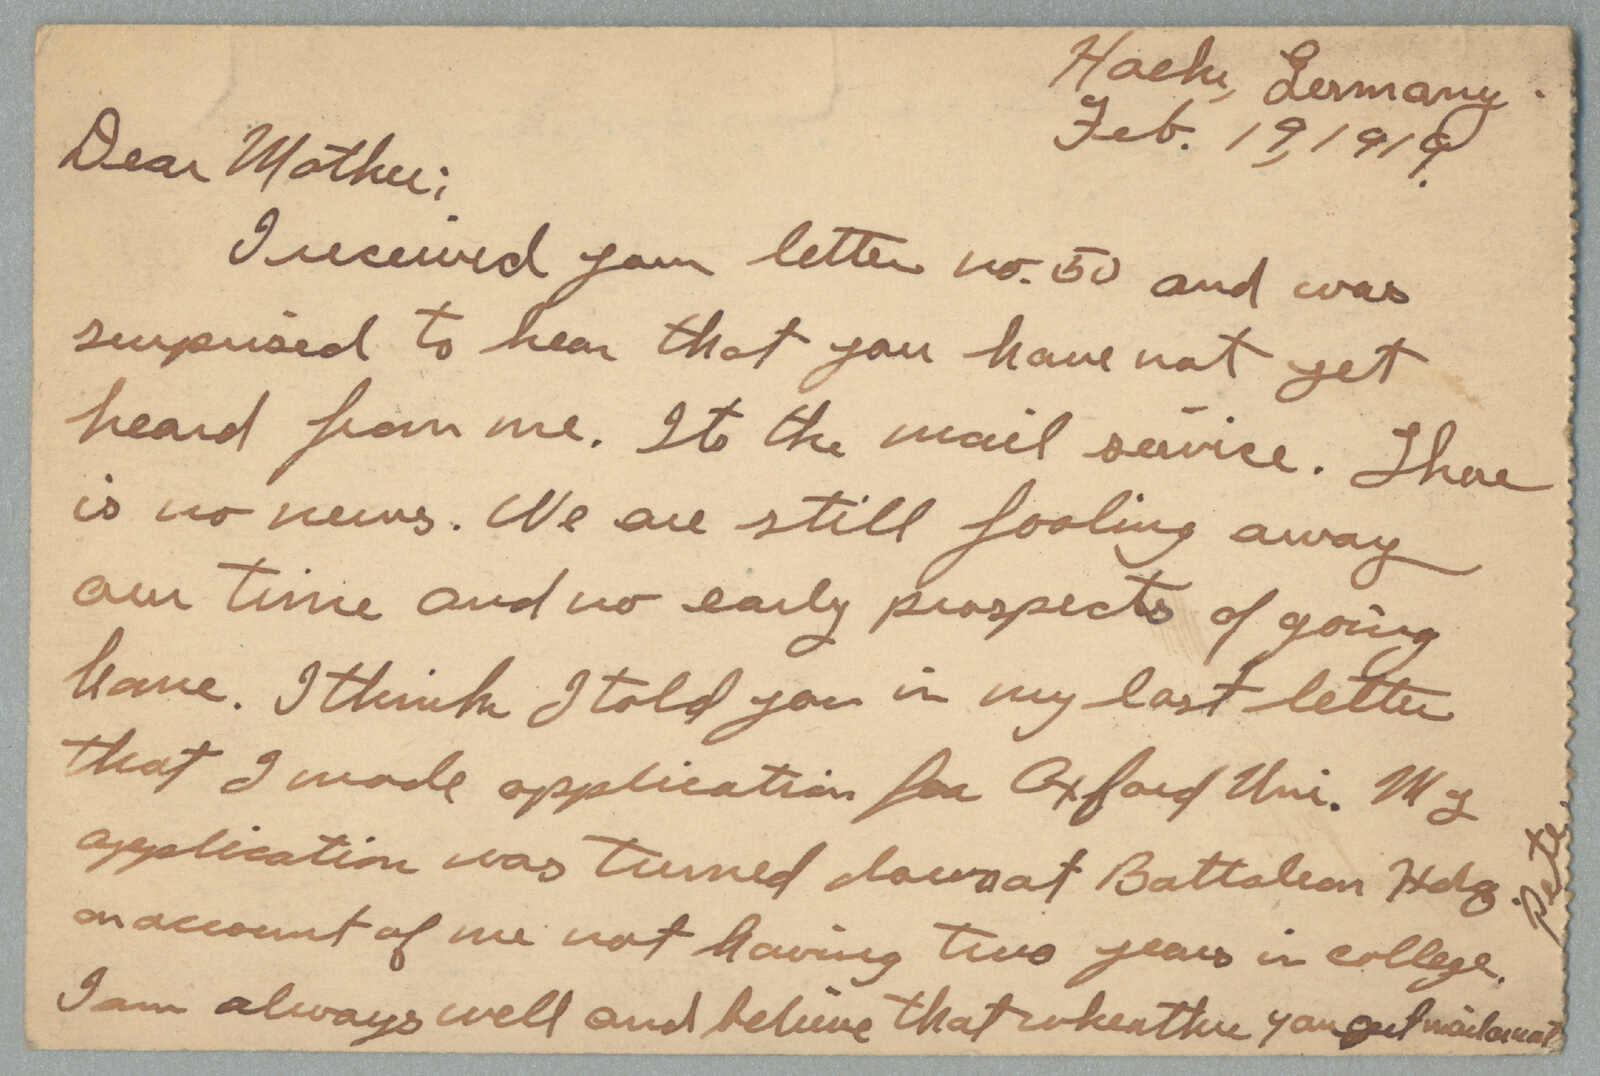 Hoehr, Germany.
Feb. 19, 1919.
Dear Mother;
I received your letter no. 50 and was
surprised to hear that you have not yet
heard from me. Its the mail service. There
is no news. We are still fooling away
our time and no early prospects of going
home. I think I told you in my last letter
that I made application for Oxford Uni. My
application was turned down at Battalion Hdq
on account of me not having two years in college.
I am always well and believe that wheather you get mail or not
Pete.